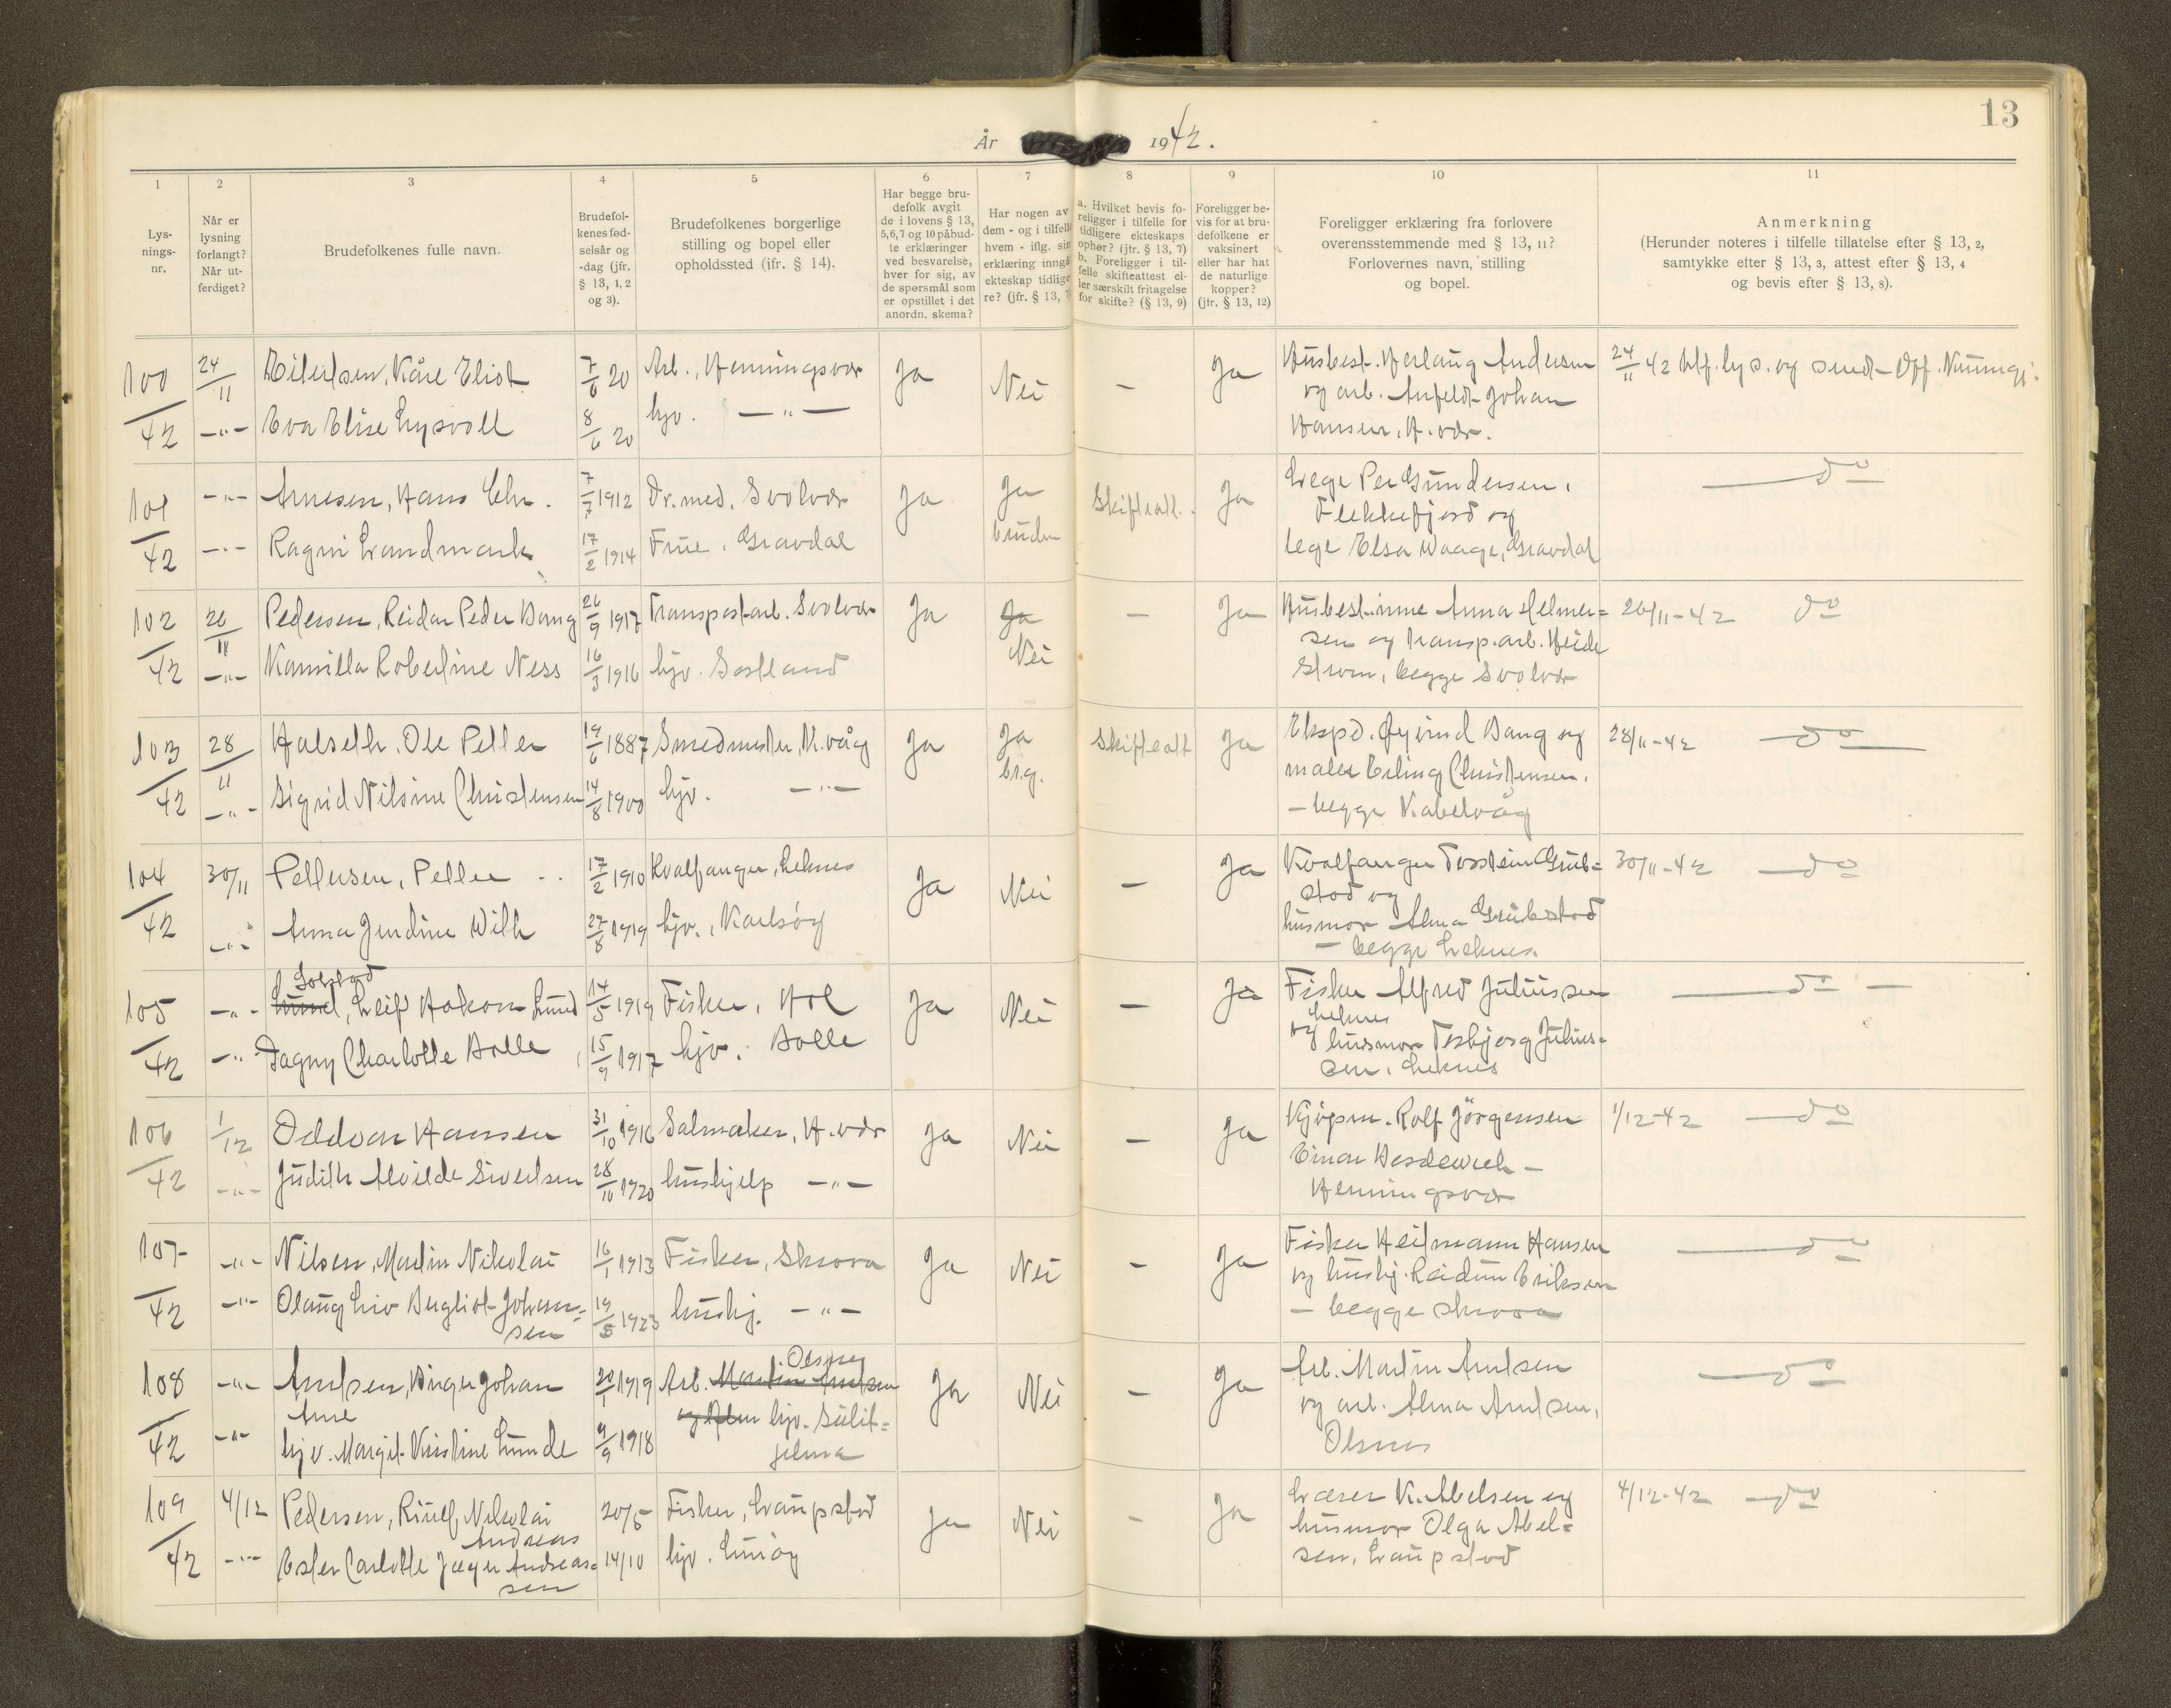 13
År 1942.
1 2 3 4 5 6 7 8 9 10 11
Lys-
nings-
nr.
Når er
lysning
forlangt?
Når ut-
ferdiget?
Brudefolkenes fulle navn.
Brudefol-
kenes fød-
selsår og
-dag (jfr.
§ 13, 1, 2
og 3).
Brudefolkenes borgerlige
stilling og bopel eller
opholdssted (jfr. § 14).
Har begge bru-
defolk avgit
de i lovens § 13,
5, 6, 7 og 10 påbud-
te erklæringer
ved besvarelse,
hver for sig, av
de spørsmål som
er opstillet i det
anordn. skema?
Har nogen av
dem - og i tilfelle
hvem - iflg. sin
erklæring inngå
ekteskap tidlige
re? (jfr. § 13, 7)
a. Hvilket bevis fo-
religger i tilfelle for
tidligere ekteskaps
ophør? (jfr. § 13, 7)
b. Foreligger i til-
felle skifteattest el-
ler særskilt fritagelse
for skifte? (§ 13, 9)
Foreligger be-
vis for at bru-
defolkene er
vaksinert
eller har hat
de naturlige
kopper?
(jfr. § 13, 12)
Foreligger erklæring fra forlovere
overensstemmende med § 13, 11?
Forlovernes navn, stilling
og bopel.
Anmerkning
(Herunder noteres i tilfelle tillatelse efter § 13, 2,
samtykke efter § 13, 3, attest efter § 13, 4
og bevis efter § 13, 8).
100/42 24/11 Eilertsen, Kåre Eliot 7/6 20 Arb., Henningsvær Ja Nei - Ja Husbest. Herlaug Andersen 24/11 42 utf. lys. og sendt Off.
-"- Eva Elise Lysvoll 8/6 20 hjv. -"- og arb. Anfeldt Johan
Hansen, H.vær.
101/42 -"- Arnesen, Hans Chr. 7/7 1912 Dr. med. Svolvær Ja Ja Skifteatt. Ja Lege Per Gundersen, do
Flekkefjord og
-"- Ragni Landmark 17/2 1914 Frue, Gravdal bruden lege Elsa Waage, Gravdal
102/42 26/11 Pedersen, Reidar Peder Bang 26/9 1917 Transportarb. Svolvær Ja Ja - Ja Husbestinne Anna Helmer= 26/11-42 do
sen og transp.arb.
-"- Kamilla Robertine Ness 16/3 1916 hjv. Nei Strøm, begge Svolvær
103/42 28/11 Halseth, Ole Petter 19/6 1887 Smedmester, K.våg Ja Ja Skifteatt Ja Ekspd. Øyvind Bang og 28/11-42 do
brg. maler Erling Christensen.
-"- Sigrid Nilsine Christensen 14/8 1900 hjv. -"- - begge Kabelvåg
104/42 30/11 Pettersen, Petter 17/2 1910 Hvalfanger, Leknes Ja Nei - Ja Hvalfanger Torstein Grub= 30/11-42 do
stad og
-"- Anna Jendine Wilh 27/8 1919 hjv., Karlsøy husmor Alma Grubstad
- begge Leknes.
Solstad
105/42 -"- Lund, Leif Hakon Lund 14/5 1919 Fisker, Hol Ja Nei - Ja Fisker Alfred Juliussen do
Leknes
-"- Dagny Charlotte Bolle 15/9 1917 hjv. Bolle og husmor Torbjørg Julius-
sen, Leknes
106/42 1/12 Oddvar Hansen 31/10 1916 Salmaker, H.vær Ja Nei - Ja Kjøpm. Rolf Jörgensen 1/12-42 do
Einar
-"- Judith Alvilde Sivertsen 28/10 1920 hushjelp -"- Henningsvær
107/42 -"- Nilsen, Martin Nikolai 16/1 1913 Fisker, Skrova Ja Nei - Ja Fisker Heitmann Hansen do
og hushj. Reidun Eriksen
-"- Olaug Liv Bergliot Johan= 19/5 1923 hushj. -"- - begge Skrova
sen
Olsnes
108/42 -"- Arntsen, Birger Johan 20/1 1919 Arb. Martin Arntsen Ja Nei - Ja Arb. Martin Arntsen do
Arne og Alma hjv. Sulit= og arb. Alma Arntsen,
-"- hjv. Margit Kristine Lunde 9/9 1918 jelma Olsnes
109/42 4/12 Pedersen, Riulf Nikolai 20/5 Fisker, Laupstad Ja Nei - Ja Lærer K. Abelsen og 4/12-42 do
Andreas husmor Olga Abel=
-"- Ester Carlotte Jæger Andreas= 14/10 hjv. sen, Laupstad
sen